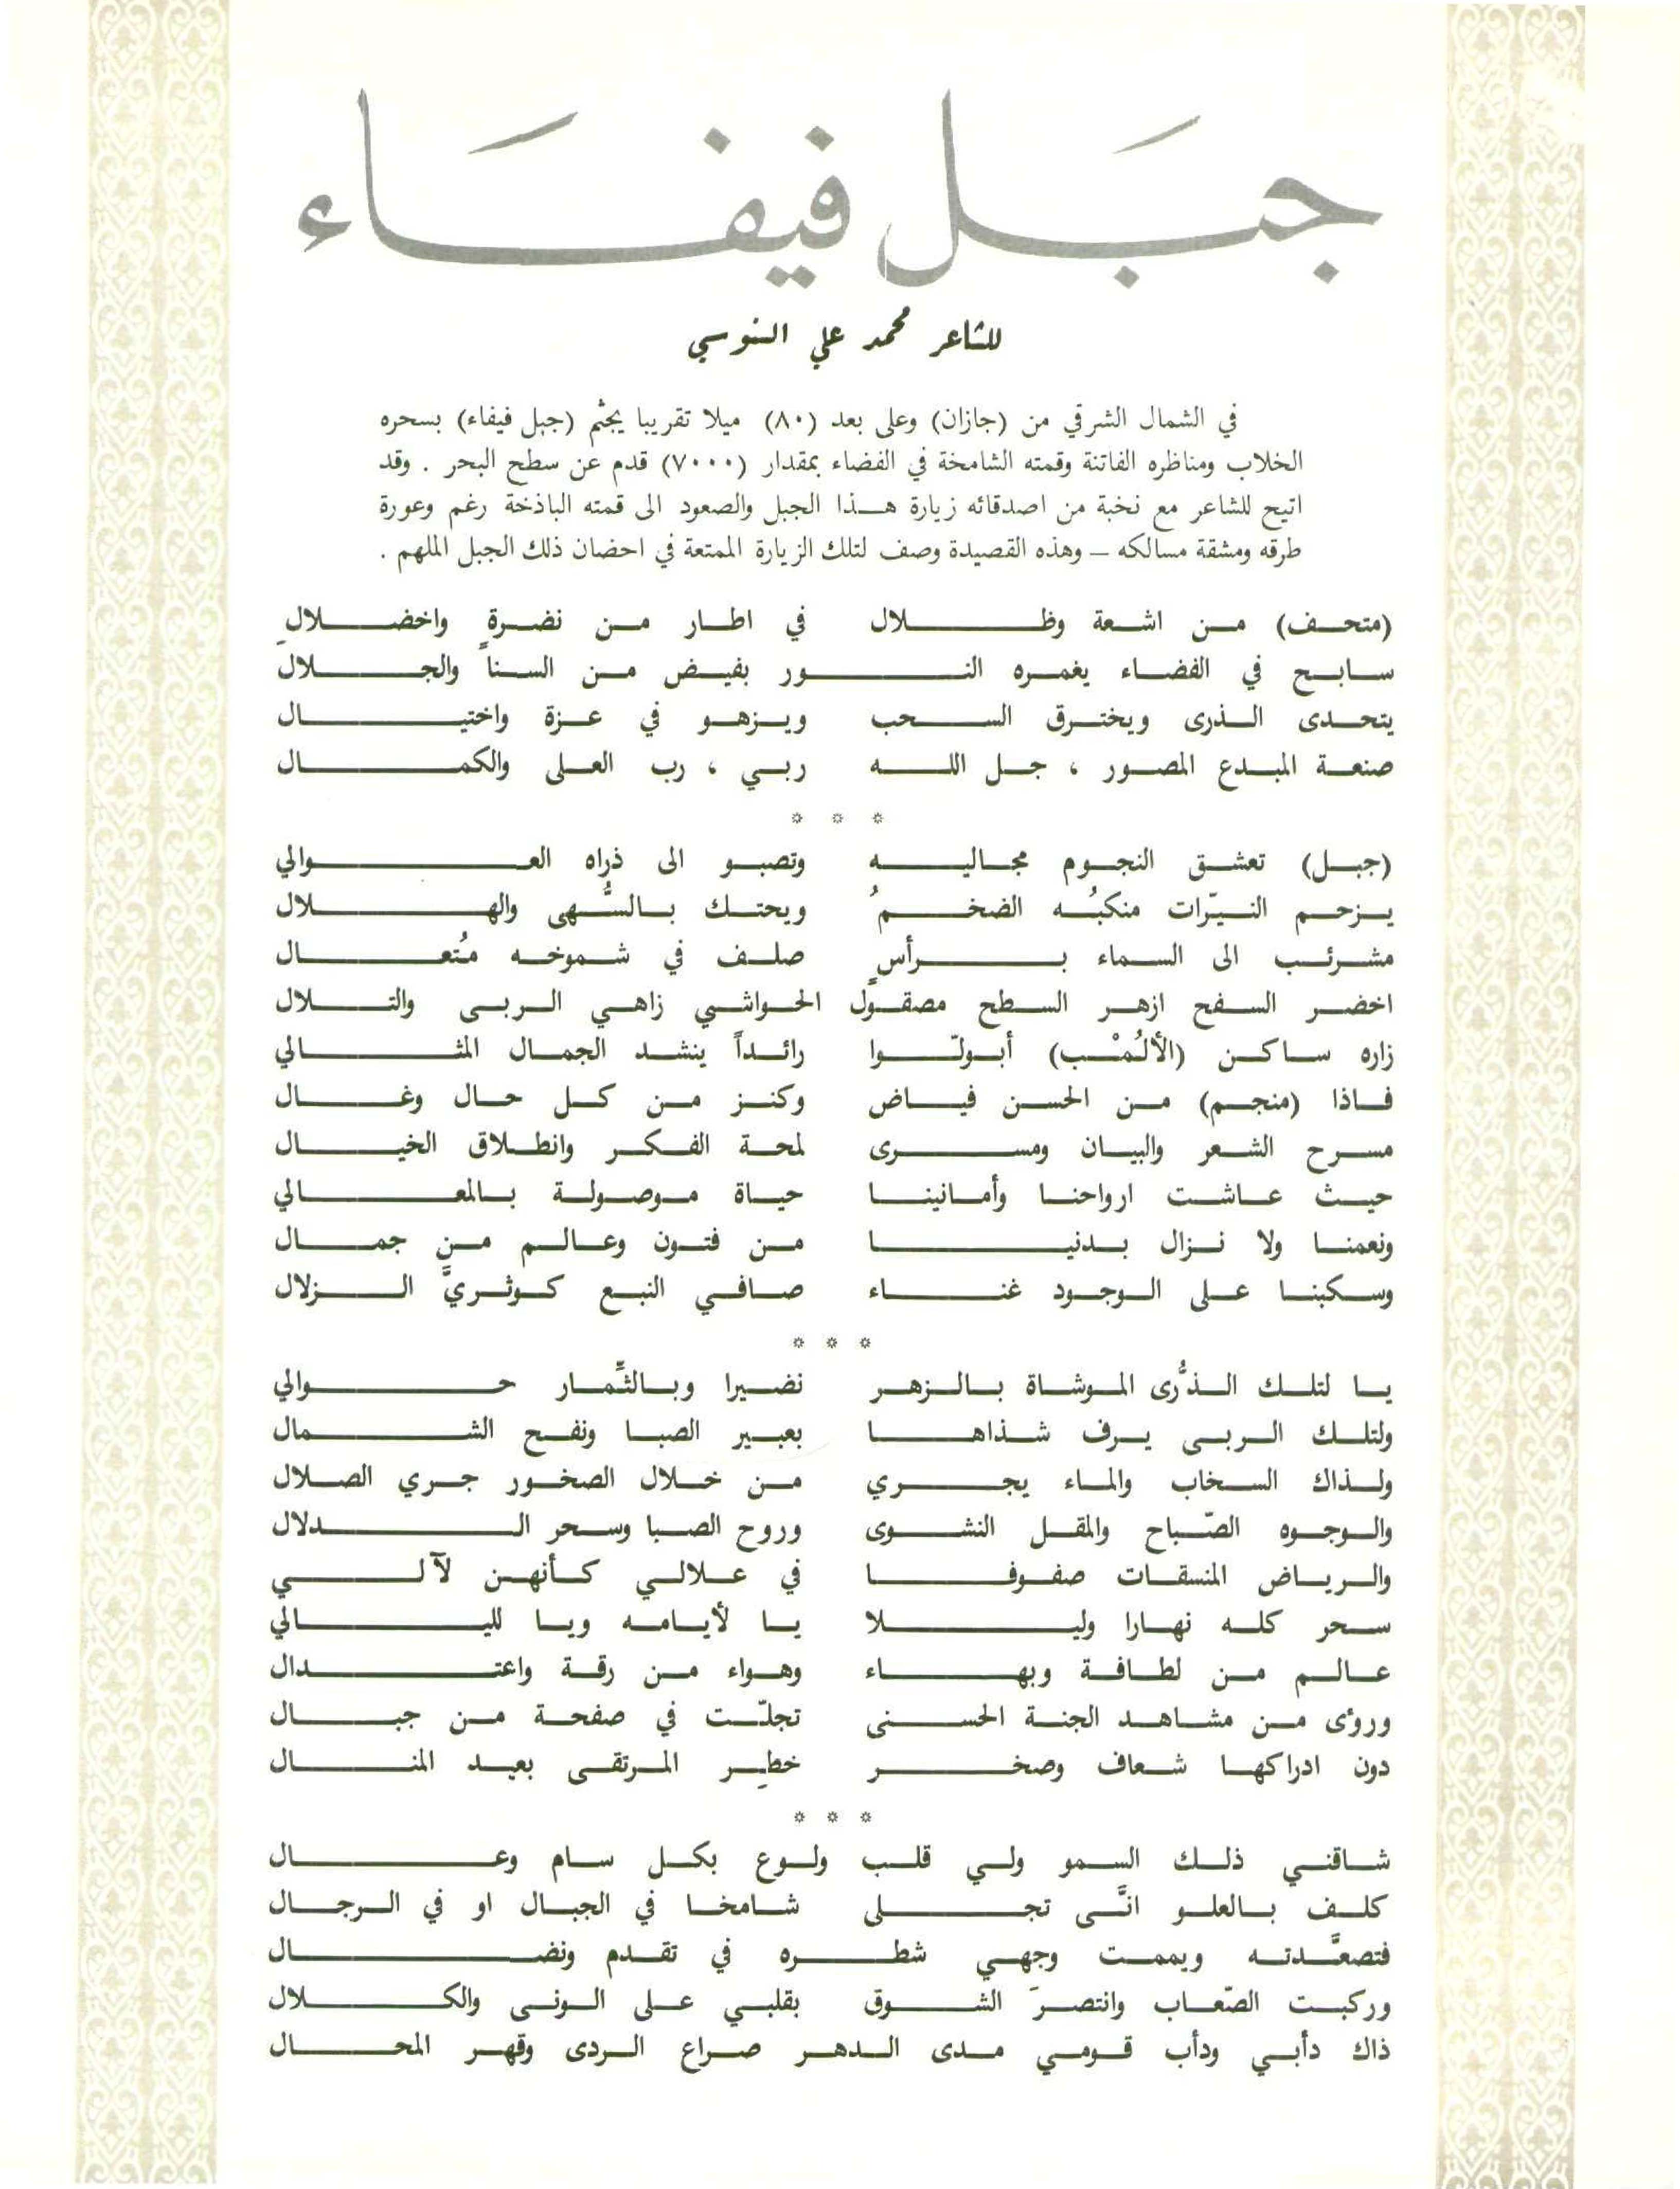 جبَل فيفَاء
للشاعر محمد علي السنوسي
في الشمال الشرقي من (جازان) وعلى بعد (٨٠) ميلا تقريبا يجثم (جبل فيفاء) بسحره
الخلاب ومناظره الفاتنة وقمته الشامخة في الفضاء بمقدار (٧٠٠٠) قدم عن سطح البحر . وقد
اتيح للشاعر مع نخبة من اصدقائه زيارة هذا الجبل والصعود الى قمته الباذخة رغم وعورة
طرقه ومشقة مسالكه – وهذه القصيدة وصف لتلك الزيارة الممتعة في احضان ذلك الجبل الملهم .
(متحف) من اشعة وظلال في اطار من نضرةٍ واخضلالِ
سابح في الفضاء يغمره النور بفيض من السناً والجلال
يتحدى الذرى ويخترق السحب ويزهو في عزة واختيال
صنعة المبدع المصور ، جل الله ربي ، رب العلى والكمال
* * *
(جبل) تعشق النجوم مجاليه وتصبو الى ذراه العوالي
يزحم النيّرات منكبُه الضخمُ ويحتك بالسُّهى والهلال
مشرئب الى السماء برأسٍ صلف في شموخه مُتعال
اخضر السفح ازهر السطح مصقول الحواشي زاهي الربى والتلال
زاره ساكن (الأُلمْب) أبولّوا رائداً ينشد الجمال المثالي
فاذا (منجم) من الحسن فياض وكنز من كل حال وغال
مسرح الشعر والبيان ومسرى لمحة الفكر وانطلاق الخيال
حيث عاشت ارواحنا وأمانينا حياة موصولة بالمعالي
ونعمنا ولا نزال بدنيا من فتون وعالم من جمال
وسكبنا على الوجود غناء صافي النبع كوثريَّ الزلال
* * *
يا لتلك الذُّرى الموشاة بالزهر نضيرا وبالثِّمار حوالي
ولتلك الربى يرف شذاها بعبير الصبا ونفح الشمال
ولذاك السخاب والماء يجري من خلال الصخور جري الصلال
والوجوه الصّباح والمقل النشوى وروح الصبا وسحر الدلال
والرياض المنسقات صفوفا في علالي كأنهن لآلي
سحر كله نهارا وليلا يا لأيامه ويا لليالي
عالم من لطافة وبهاء وهواء من رقة واعتدال
ورؤى من مشاهد الجنة الحسنى تجلّت في صفحة من جبال
دون ادراكها شعاف وصخر خطِر المرتقى بعيد المنال
* * *
شاقني ذلك السمو ولي قلب ولوع بكل سام وعال
كلف بالعلو انَّى تجلى شامخا في الجبال او في الرجال
فتصعَّدته ويممت وجهي شطره في تقدم ونضال
وركبت الصّعاب وانتصرَ الشوق بقلبي على الونى والكلال
ذاك دأبي ودأب قومي مدى الدهر صراع الردى وقهر المحال